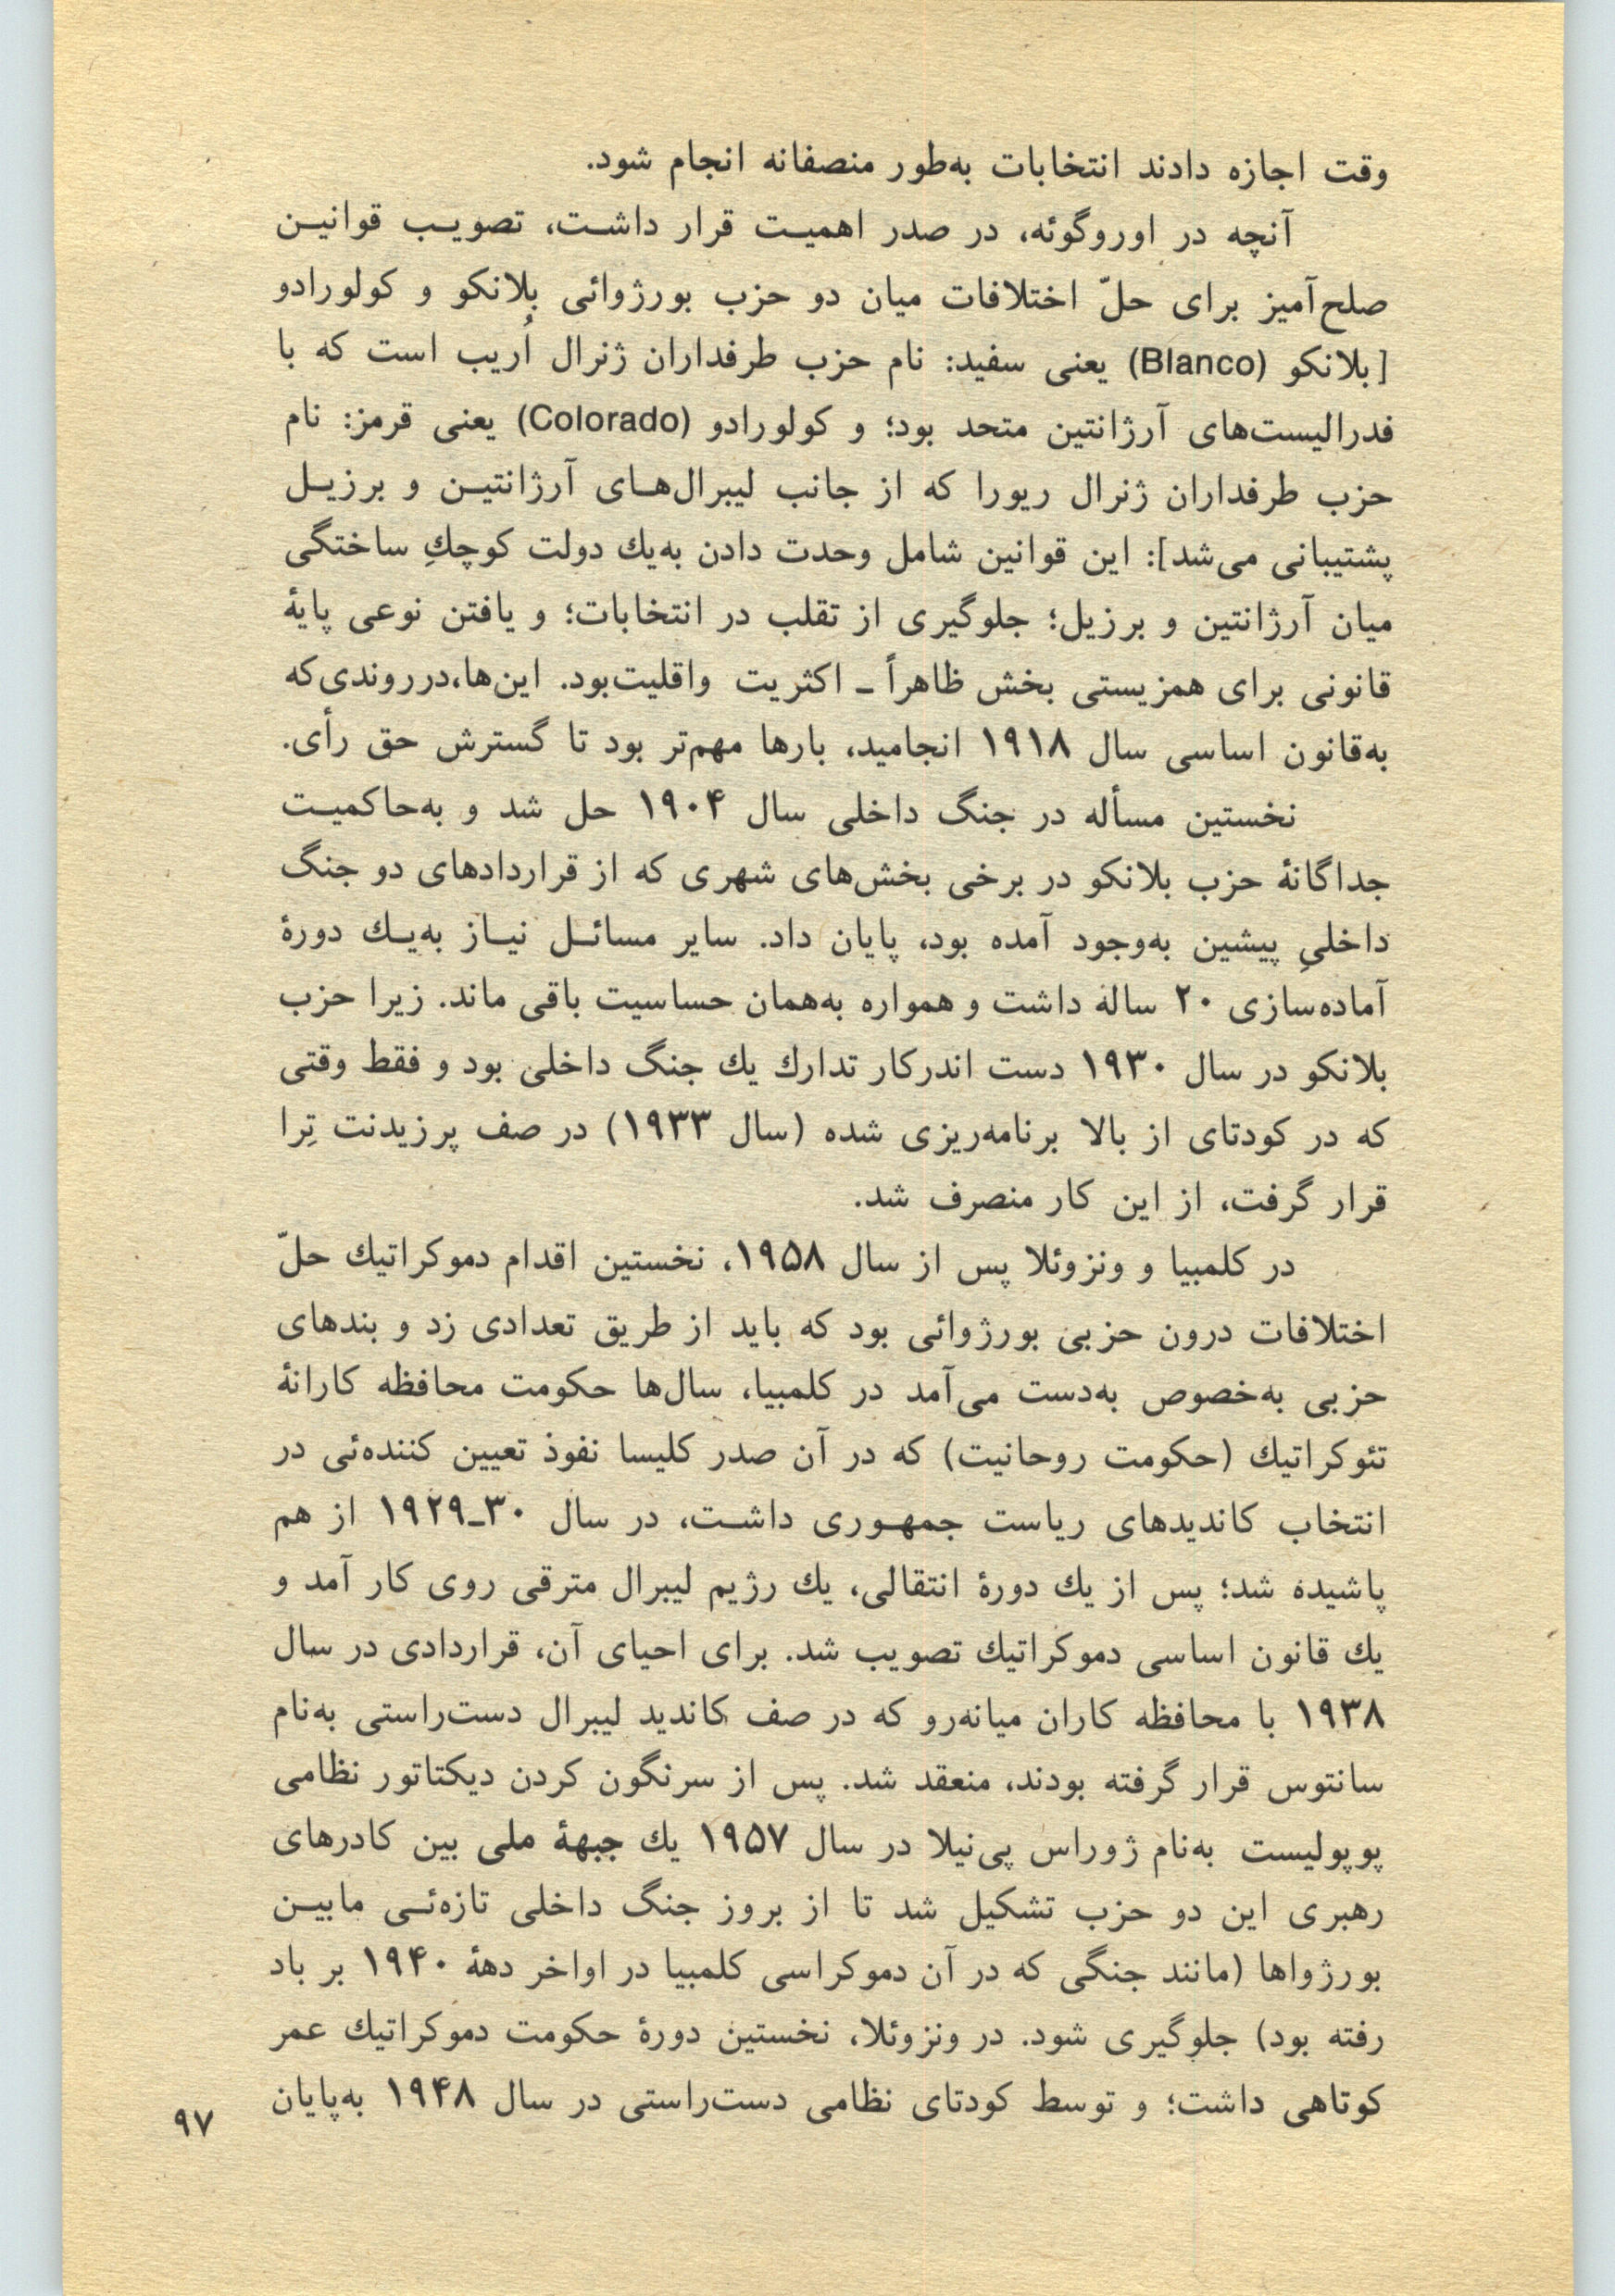 وقت اجازه دادند انتخابات به‌طور منصفانه انجام شود.
آنچه در اوروگوئه، در صدر اهمیت قرار داشت، تصویب قوانین
صلح‌آمیز برای حلّ اختلافات میان دو حزب بورژوائی بلانکو و کولورادو
[بلانکو (Blanco) یعنی سفید: نام حزب طرفداران ژنرال اُریب است که با
فدرالیست‌های آرژانتین متحد بود؛ و کولورادو (Colorado) یعنی قرمز: نام
حزب طرفداران ژنرال ریورا که از جانب لیبرال‌های آرژانتین و برزیل
پشتیبانی می‌شد]: این قوانین شامل وحدت دادن به‌یك دولت کوچكِ ساختگی
میان آرژانتین و برزیل؛ جلوگیری از تقلب در انتخابات؛ و یافتن نوعی پایۀ
قانونی برای همزیستی بخش ظاهراً ـ اکثریت واقلیت‌بود. این‌ها،درروندی‌که
به‌قانون اساسی سال ۱۹۱۸ انجامید، بارها مهم‌تر بود تا گسترش حق رأی.
نخستین مسأله در جنگ داخلی سال ۱۹۰۴ حل شد و به‌حاکمیت
جداگانۀ حزب بلانکو در برخی بخش‌های شهری که از قراردادهای دو جنگ
داخلیِ پیشین به‌وجود آمده بود، پایان داد. سایر مسائل نیاز به‌یك دورۀ
آماده‌سازی ۲۰ ساله داشت و همواره به‌همان حساسیت باقی ماند. زیرا حزب
بلانکو در سال ۱۹۳۰ دست اندرکار تدارك یك جنگ داخلی بود و فقط وقتی
که در کودتای از بالا برنامه‌ریزی شده (سال ۱۹۳۳) در صف پرزیدنت تِرا
قرار گرفت، از این کار منصرف شد.
در کلمبیا و ونزوئلا پس از سال ۱۹۵۸، نخستین اقدام دموکراتیك حلّ
اختلافات درون حزبی بورژوائی بود که باید از طریق تعدادی زد و بندهای
حزبی به‌خصوص به‌دست می‌آمد در کلمبیا، سال‌ها حکومت محافظه کارانۀ
تئوکراتیك (حکومت روحانیت) که در آن صدر کلیسا نفوذ تعیین کننده‌ئی در
انتخاب کاندیدهای ریاست جمهوری داشت، در سال ۳۰ـ۱۹۲۹ از هم
پاشیده شد؛ پس از یك دورۀ انتقالی، یك رژیم لیبرال مترقی روی کار آمد و
یك قانون اساسی دموکراتیك تصویب شد. برای احیای آن، قراردادی در سال
۱۹۳۸ با محافظه کاران میانه‌رو که در صف کاندید لیبرال دست‌راستی به‌نام
سانتوس قرار گرفته بودند، منعقد شد. پس از سرنگون کردن دیکتاتور نظامی
پوپولیست به‌نام ژوراس پی‌نیلا در سال ۱۹۵۷ یك جبهۀ ملی بین کادرهای
رهبری این دو حزب تشکیل شد تا از بروز جنگ داخلی تازه‌ئی مابین
بورژواها (مانند جنگی که در آن دموکراسی کلمبیا در اواخر دهۀ ۱۹۴۰ بر باد
رفته بود) جلوگیری شود. در ونزوئلا، نخستین دورۀ حکومت دموکراتیك عمر
کوتاهی داشت؛ و توسط کودتای نظامی دست‌راستی در سال ۱۹۴۸ به‌پایان
۹۷